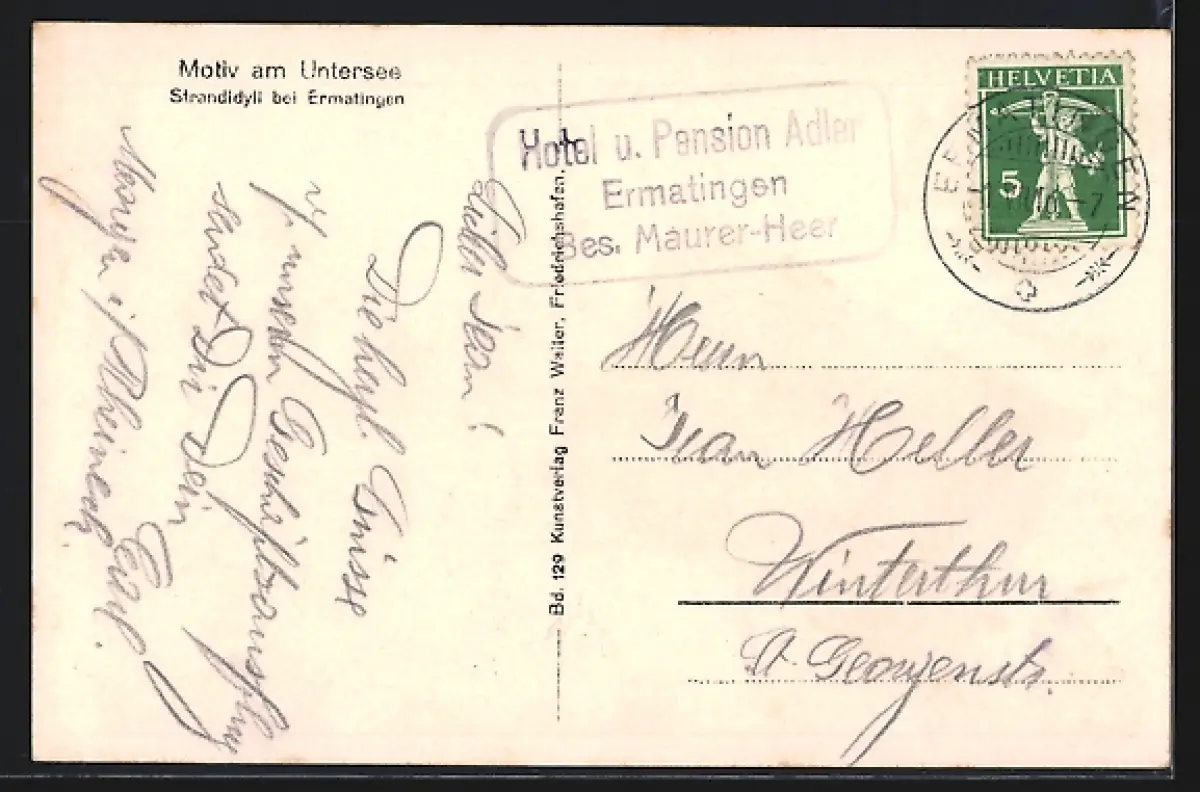 Motiv am Untersee
Strandidyll bei Ermatingen
Hotel u. Pension Adler
Ermatingen
Bes. Maurer-Heer
HELVETIA
5
Lieber Jean!
Die herzl. Grüsse
v. unserm Geschäftsausflug
sendet Dir Dein
Emil.
Morgen i/ Rheineck.
Bd. 129 Kunstverlag Franz Walter, Friedrichshafen.
Herrn
Jean Heller
Winterthur
St. Georgenstr.